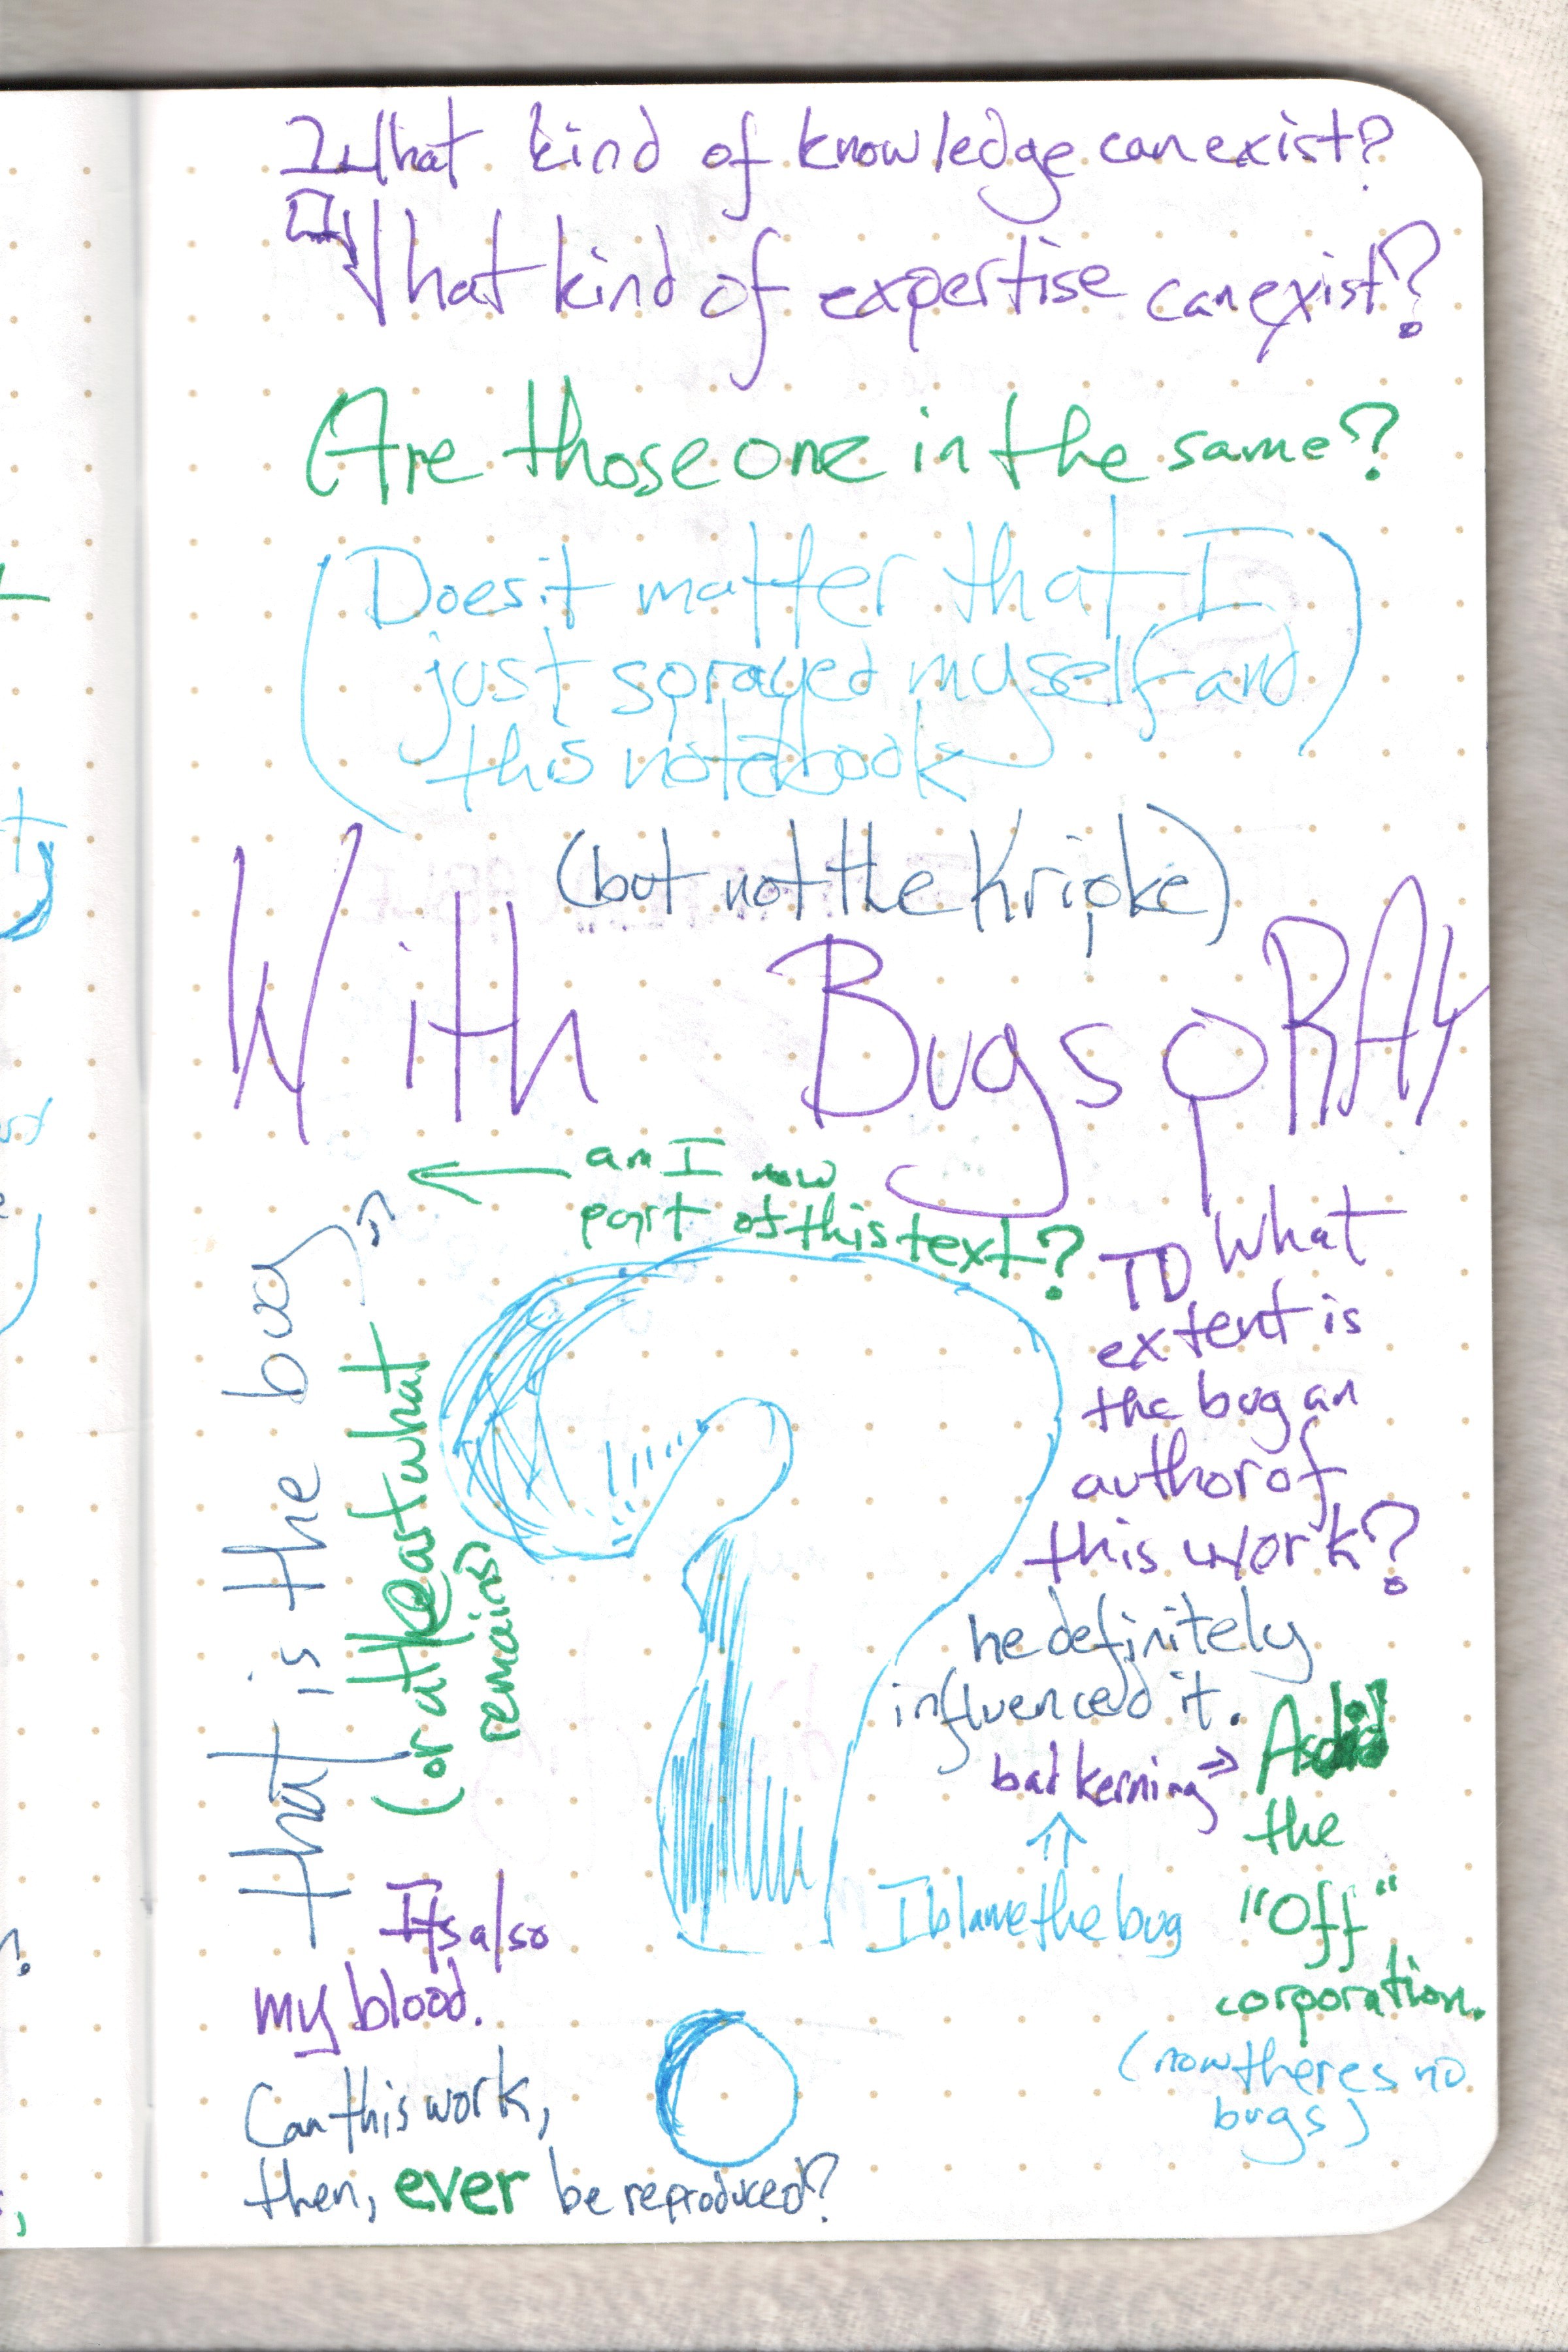 What kind of knowledge can exist?
What kind of expertise can exist?
Are those one in the same?
(Does it matter that I
just sprayed myself and
this notebook)
(but not the Kripke)
With BugspRAY
am I now
part of this text?
that is the bug
(or at least what
remains)
It's also
my blood.
Can this work,
then, ever be reproduced?
TO What
extent is
the bug an
author of
this work?
he definitely
influenced it.
bad kerning ⇒
I blame the bug
As did
the
"Off"
corporation.
(now theres no
bugs)